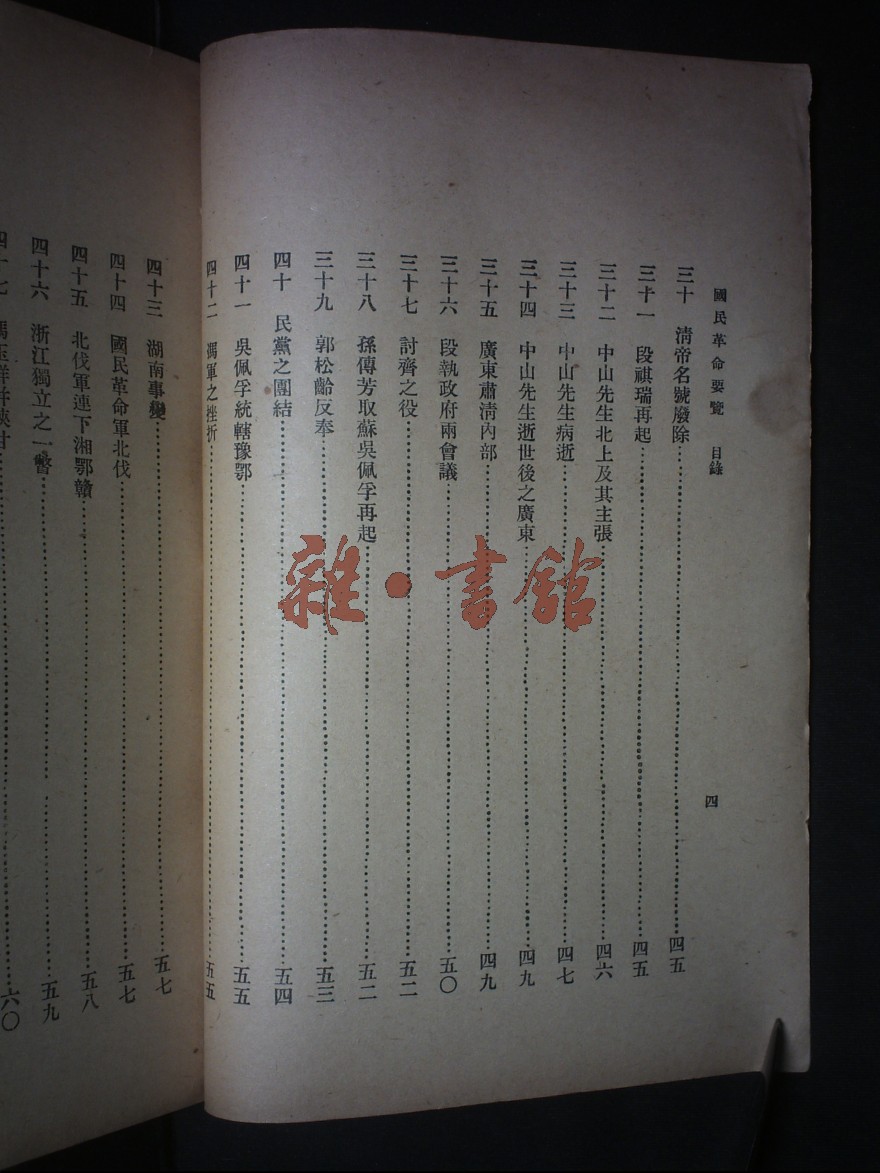 國民革命要覽 目錄 四
三十 清帝名號廢除 四五
三十一 段祺瑞再起 四五
三十二 中山先生北上及其主張 四六
三十三 中山先生病逝 四七
三十四 中山先生逝世後之廣東 四九
三十五 廣東肅清內部 四九
三十六 段執政府兩會議 五〇
三十七 討齊之役 五二
三十八 孫傳芳取蘇吳佩孚再起 五二
三十九 郭松齡反奉 五三
四十 民黨之團結 五四
四十一 吳佩孚統轄豫鄂 五五
四十二 馮軍之挫折 五五
四十三 湖南事變 五七
四十四 國民革命軍北伐 五七
四十五 北伐軍連下湘鄂贛 五八
四十六 浙江獨立之一瞥 五九
四十七 馮玉祥 六〇
雜·書館